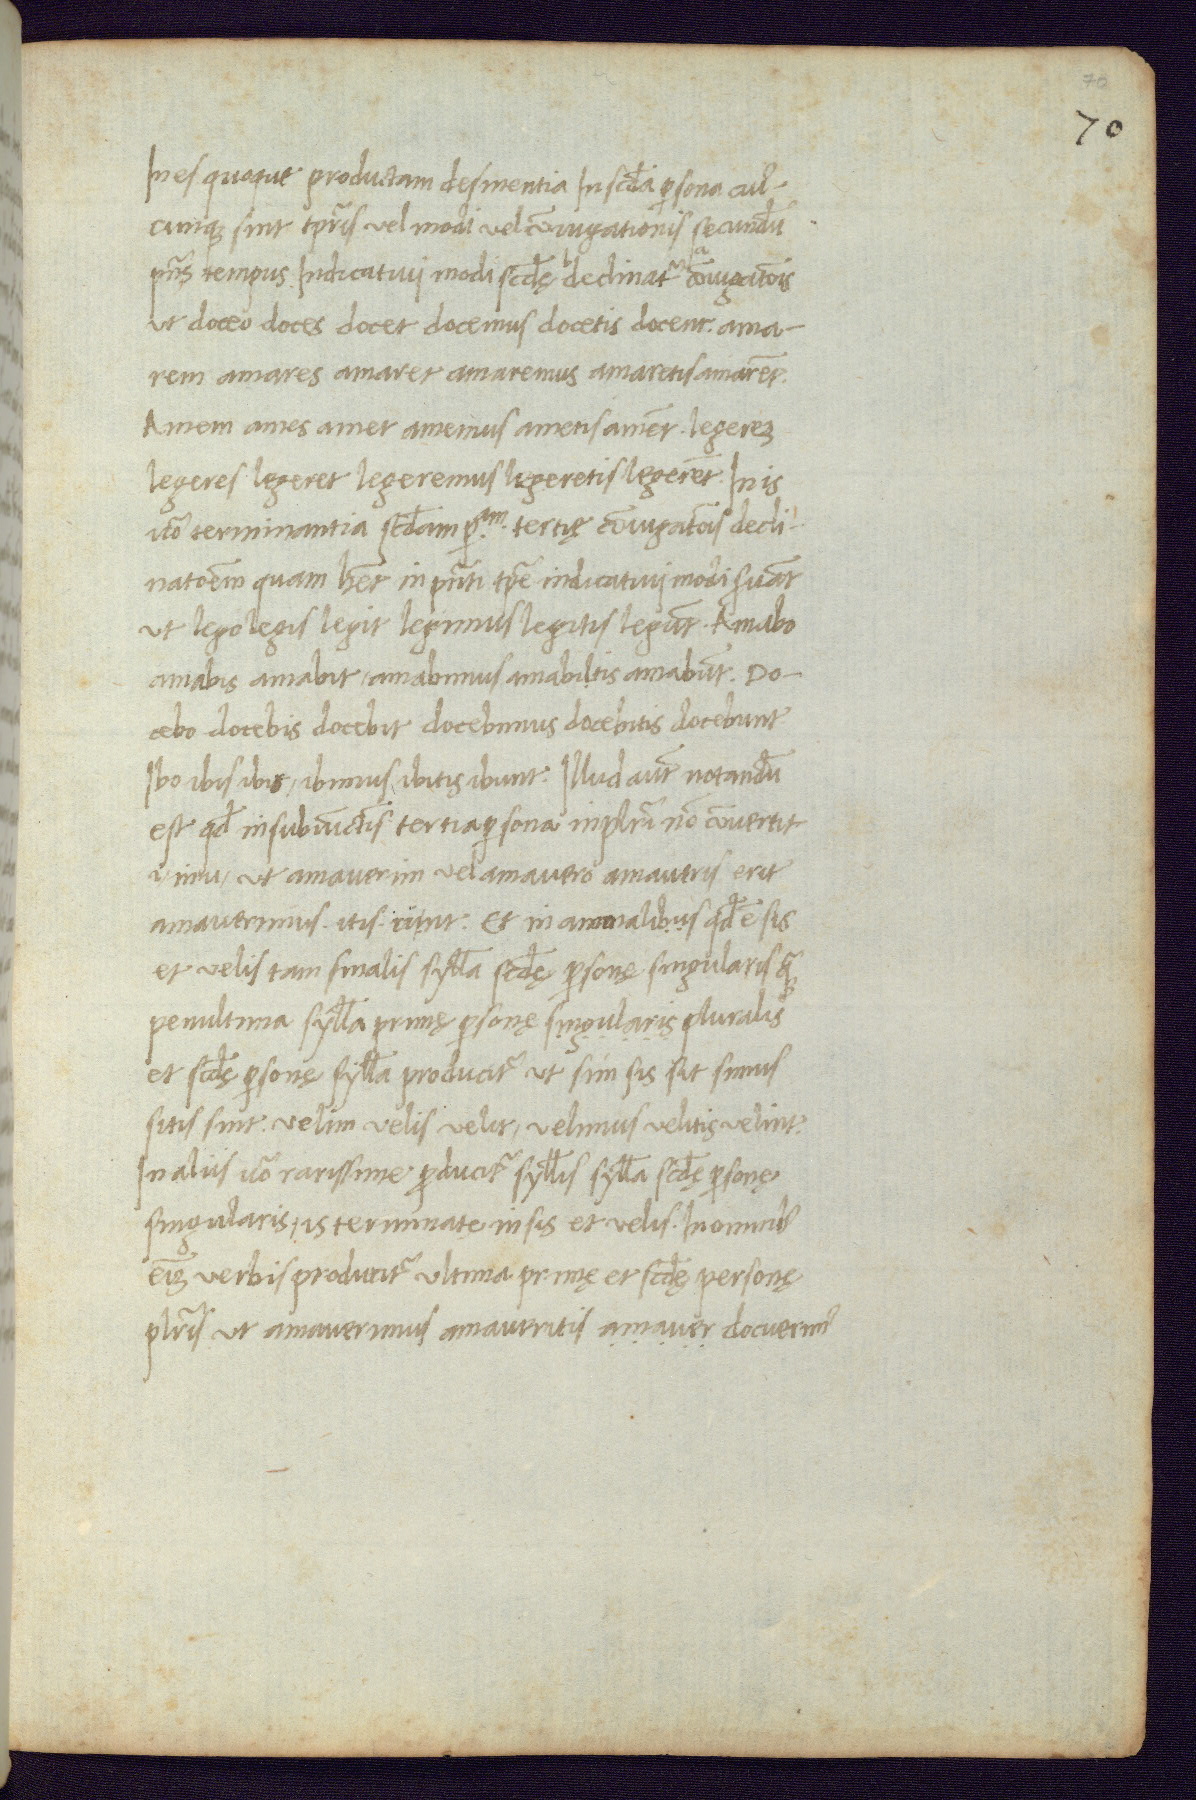 70
70
In es quoque productam desinentia In scd̄a ꝑsona cui-
cunqꝫ sint tp̄ris vel modi vel cōiugationis secundū
pn̄s tempus Indicatiui modi scd̄ę declinatᷣ cōiugatōis
ut doceo doces docet docemus docetis docent. ama-
rem amares amaret amaremus amaretis amarēt.
Amem ames amet amemus ametis amēt. legereꝫ
legeres legeret legeremus legeretis legerēt. In is
uō terminantia scd̄am ꝑ.am. tertię cōiugatōis decli-
natōem quam hn̄t in pn̄ti tp̄e indicatiui modi ẜuāt
ut lego legis legit legimus legitis legūt. Amabo
amabis amabit, amabimus amabitis amabūt. Do-
cebo docebis docebit docebimus docebitis docebunt
Ibo ibis ibit, ibimus, ibitis ibunt. Illud aūt notandū
est qd̄ in subiūctīs tertia ꝑsona in plr̄i nō cōuertit
i, in u, ut amauerim vel amauero amaueris erit
amauerimus. itis. rint. Et in anomalibus qd̄ ē sis
et velis tam finalis syll̄a scd̄ę ꝑsonę singularis q̄ꝫ
penultima syll̄a primę ꝑsonę ṣịṇg̣ụḷạṛịṣ pluralis
et scd̄ę ꝑsonę syll̄a producitᷣ ut sim sis sit simus
sitis sint. velim velis velit, velimus velitis velint.
In aliis uō rarissime ꝓducitᷣ syll̄is syll̄a scd̄ę ꝑsonę
singularis, is terminatę in sis et velis. In omnibꝰ
eīꝫ verbis producitᷣ ultima primę et scd̄ę personę
plr̄is ut amauerimus amaueritis ạṃạụẹṛ docuerimꝰ